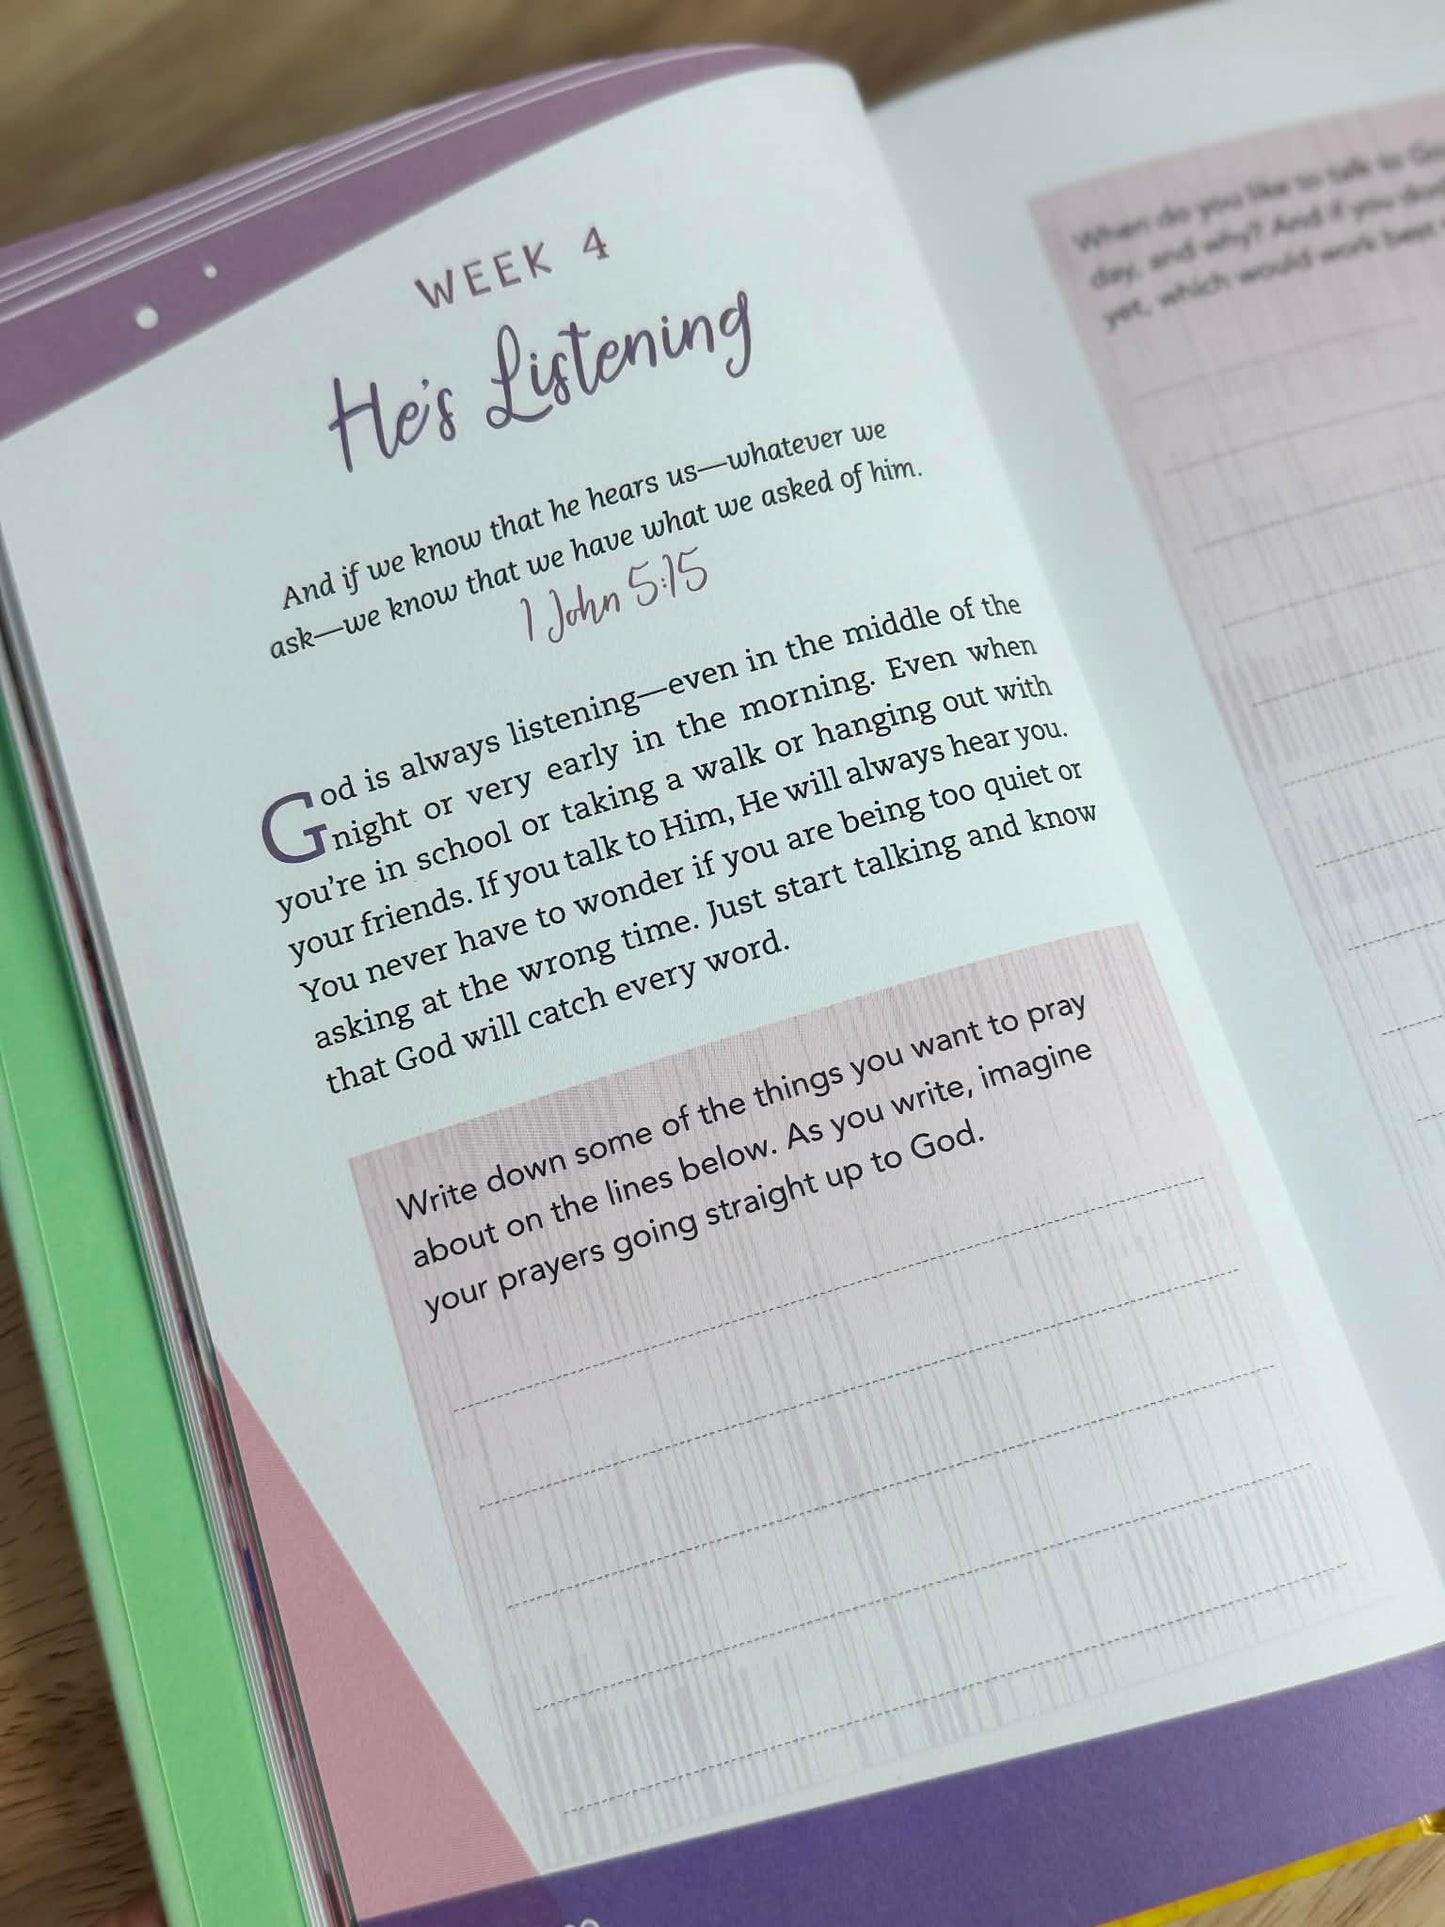 WEEK 4
He's Listening
And if we know that he hears us—whatever we
ask—we know that we have what we asked of him.
1 John 5:15
God is always listening—even in the middle of the
night or very early in the morning. Even when
you're in school or taking a walk or hanging out with
your friends. If you talk to Him, He will always hear you.
You never have to wonder if you are being too quiet or
asking at the wrong time. Just start talking and know
that God will catch every word.
Write down some of the things you want to pray
about on the lines below. As you write, imagine
your prayers going straight up to God.
When do you like to talk to
day, and why? And if you
yet, which would work best